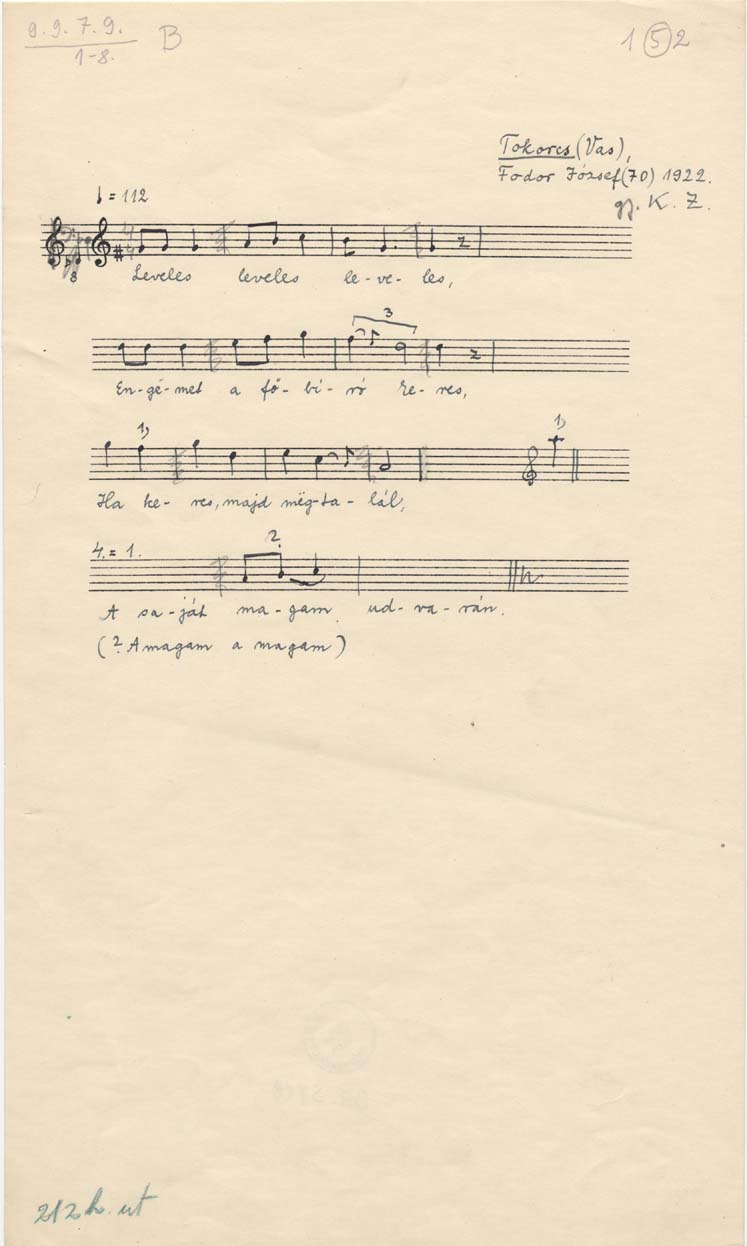 9. 9. 7. 9. B
1-8.
1 5 2
Tokorcs (Vas),
Fodor József (70) 1922.
gy. K. Z.
= 112
8
Leveles leveles le-ve-les,
3
En-gë-met a fő-bí-ró ke-res,
1) 1)
Ha ke-res, majd mëg-ta-lál,
4. = 1. 2.
A sa-ját ma-gam ud-va-rán.
(2. A magam a magam)
212 h. ut